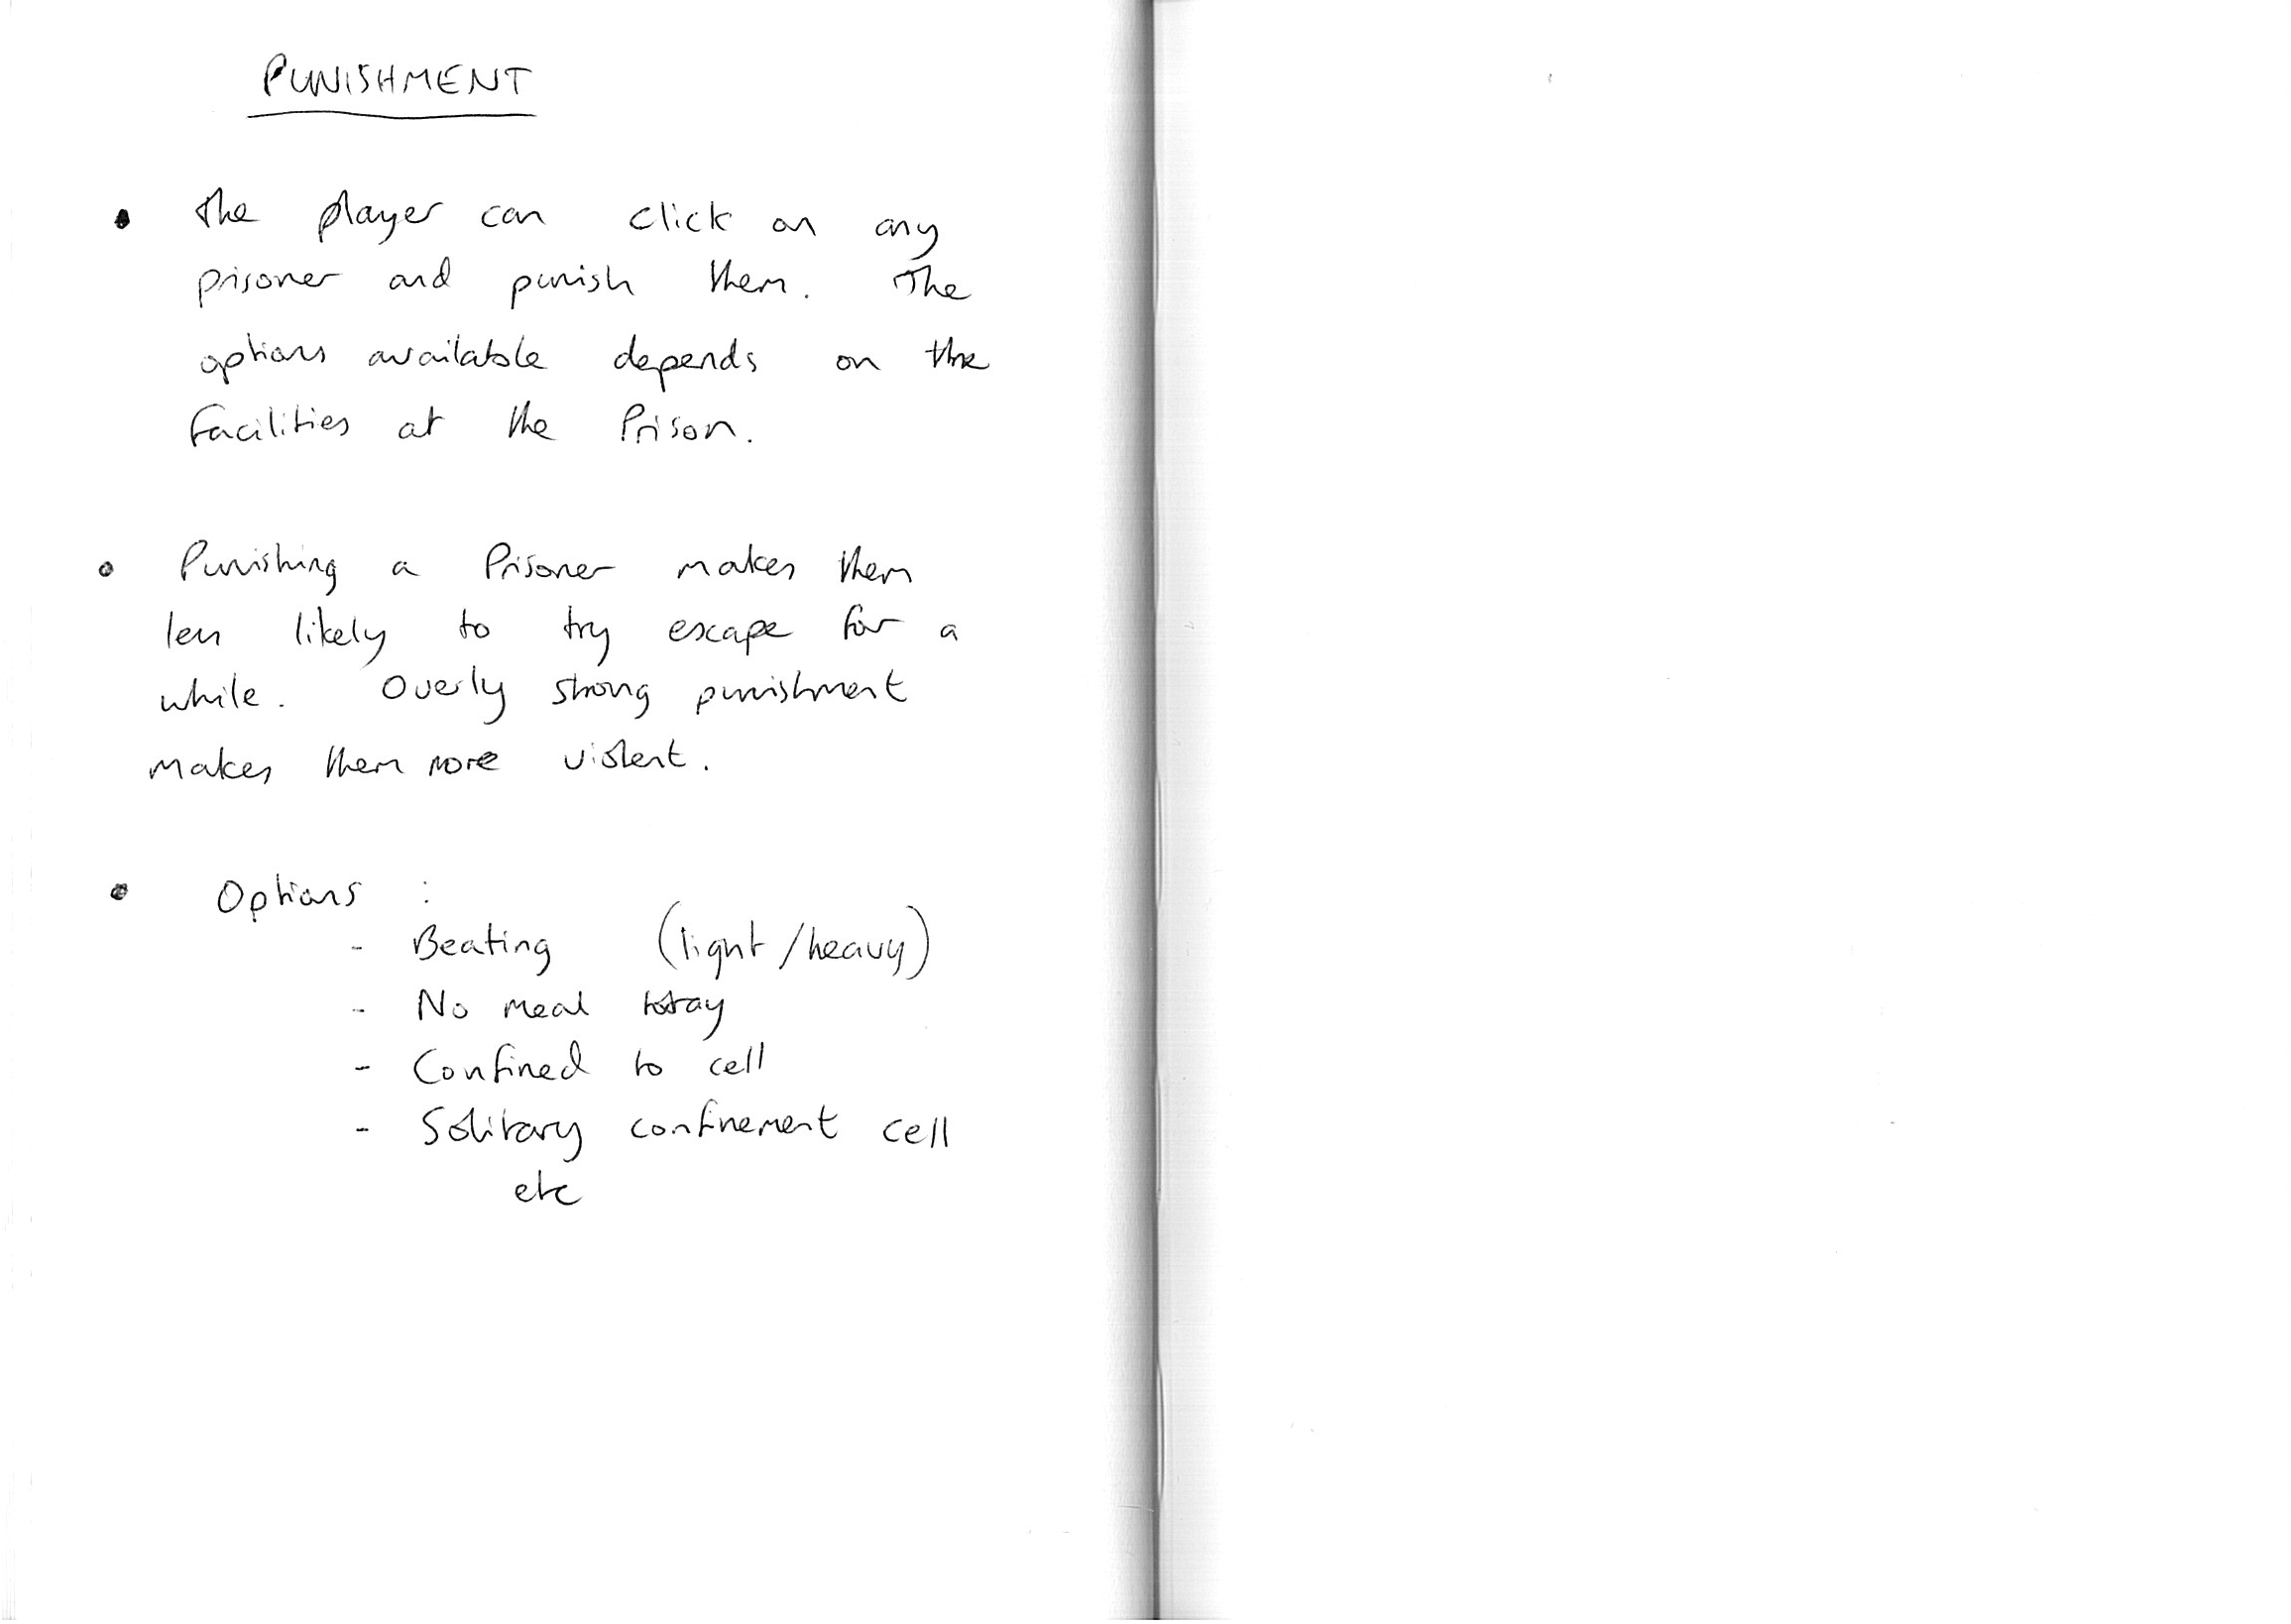 PUNISHMENT
• The player can click on any
prisoner and punish them. The
options available depends on the
facilities at the Prison.
• Punishing a Prisoner makes them
less likely to try escape for a
while. Overly strong punishment
makes them more violent.
• Options :
- Beating (light/heavy)
- No meal today
- Confined to cell
- Solitary confinement cell
etc